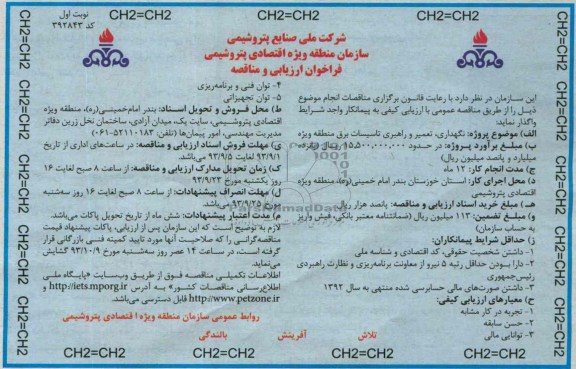 CH2=CH2 CH2=CH2 CH2=CH2 CH2=CH2
نوبت اول
کد ۳۹۲۸۴۳
شرکت ملی صنایع پتروشیمی
سازمان منطقه ویژه اقتصادی پتروشیمی
فراخوان ارزیابی و مناقصه
این سازمان در نظر دارد با رعایت قانون برگزاری مناقصات انجام موضوع
ذیل را از طریق مناقصه عمومی با ارزیابی کیفی به پیمانکار واجد شرایط
واگذار نماید:
الف) موضوع پروژه: نگهداری، تعمیر و راهبری تاسیسات برق منطقه ویژه
ب) مبلغ برآورد پروژه: در حدود ۱۵,۵۰۰,۰۰۰,۰۰۰ ریال (پانزده
میلیارد و پانصد میلیون ریال)
ج) مدت انجام کار: ۱۲ ماه
د) محل اجرای کار: استان خوزستان بندر امام خمینی(ره) منطقه ویژه
اقتصادی پتروشیمی
هـ) مبلغ خرید اسناد ارزیابی و مناقصه: پانصد هزار ریال
و) مبلغ تضمین: ۱۱۳ میلیون ریال (ضمانتنامه معتبر بانکی، فیش واریز
به حساب سازمان)
ز) حداقل شرایط پیمانکاران:
۱- داشتن شخصیت حقوقی، کد اقتصادی و شناسه ملی
۲- دارا بودن حداقل رتبه ۵ نیرو از معاونت برنامه‌ریزی و نظارت راهبردی
رئیس‌جمهوری
۳- داشتن صورت‌های مالی حسابرسی شده منتهی به سال ۱۳۹۲
ح) معیارهای ارزیابی کیفی:
۱- تجربه در کار مشابه
۲- حسن سابقه
۳- توانایی مالی
۴- توان فنی و برنامه‌ریزی
۵- توان تجهیزاتی
ط) محل فروش و تحویل اسناد: بندر امام‌خمینی(ره)، منطقه ویژه
اقتصادی پتروشیمی، سایت یک، میدان آزادی، ساختمان نخل زرین دفاتر
مدیریت مهندسی، امور پیمان‌ها (تلفن: ۵۲۱۱۰۱۸۳-۰۶۱)
ی) مهلت فروش اسناد ارزیابی و مناقصه: در ساعت‌های اداری از تاریخ
۹۳/۹/۱ لغایت ۹۳/۹/۵ می‌باشد.
ک) زمان تحویل مدارک ارزیابی و مناقصه: از ساعت ۸ صبح لغایت ۱۶
روز یکشنبه مورخ ۹۳/۹/۲۳
ل) مهلت انصراف پیشنهادات: از ساعت ۸ صبح لغایت ۱۶ روز سه‌شنبه
مورخ ۹۳/۹/۲۵ می‌باشد.
م) مدت اعتبار پیشنهادات: شش ماه از تاریخ تحویل پاکات می‌باشد.
لازم به توضیح است که این سازمان پس از ارزیابی، پاکات پیشنهاد قیمت
مناقصه‌گرانی را که صلاحیت آنها مورد تایید کمیته فنی بازرگانی قرار
گرفته است، در ساعت ۱۴ عصر روز سه‌شنبه مورخ ۹۳/۱۰/۹ گشایش
می‌نماید
اطلاعات تکمیلی مناقصه فوق از طریق وب‌سایت «پایگاه ملی
اطلاع‌رسانی مناقصات کشور» به آدرس http://iets.mporg.ir و
http://www.petzone.ir قابل دسترسی می‌باشد.
روابط عمومی سازمان منطقه ویژه اقتصادی پتروشیمی
تلاش آفرینش بالندگی
CH2=CH2 CH2=CH2 CH2=CH2 CH2=CH2